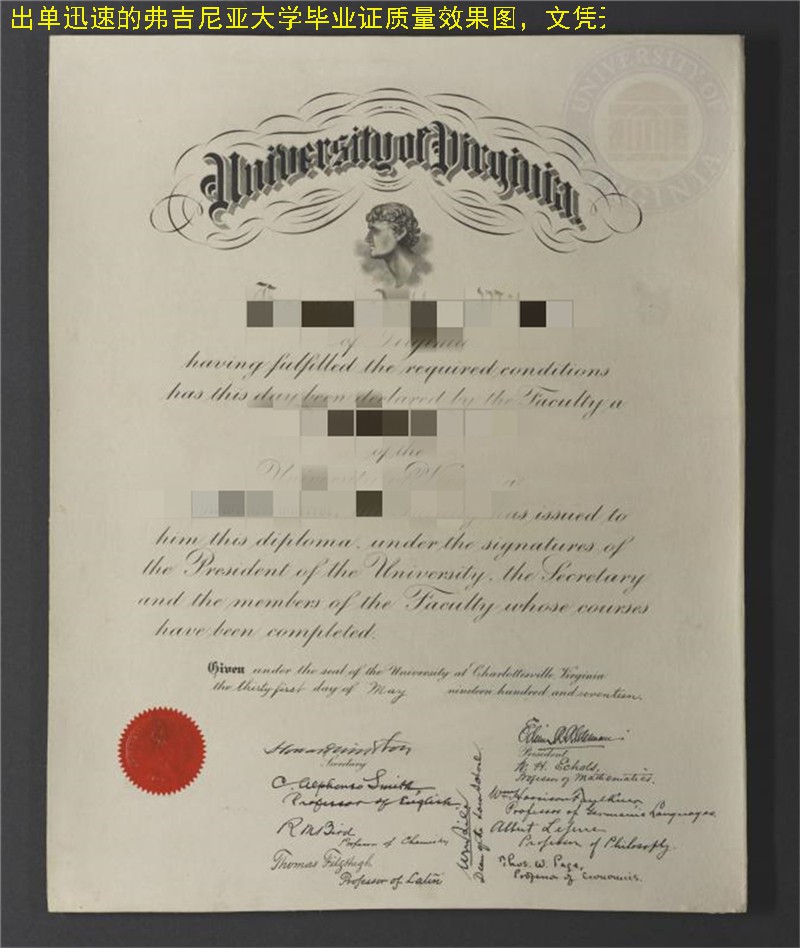 出单迅速的弗吉尼亚大学毕业证质量效果图，文凭
UNIVERSITY OF
VIRGINIA
University of Virginia
of Virginia
having fulfilled the required conditions
has this day been declared by the Faculty a
of the
University
as issued to
him this diploma, under the signatures of
the President of the University, the Secretary
and the members of the Faculty whose courses
have been completed.
Given under the seal of the University at Charlottesville, Virginia
the thirty first day of May nineteen hundred and seventeen.
Secretary
C. Alphonso Smith,
Professor of English.
R M Bird
Professor of Chemistry
Thomas FitzHugh
Professor of Latin
Edwin A. Alderman
President.
W. H. Echols,
Professor of Mathematics.
Wm Harrison Faulkner
Professor of Germanic Languages.
Albert Lefevre
Professor of Philosophy.
Thos. W. Page,
Professor of Economics.